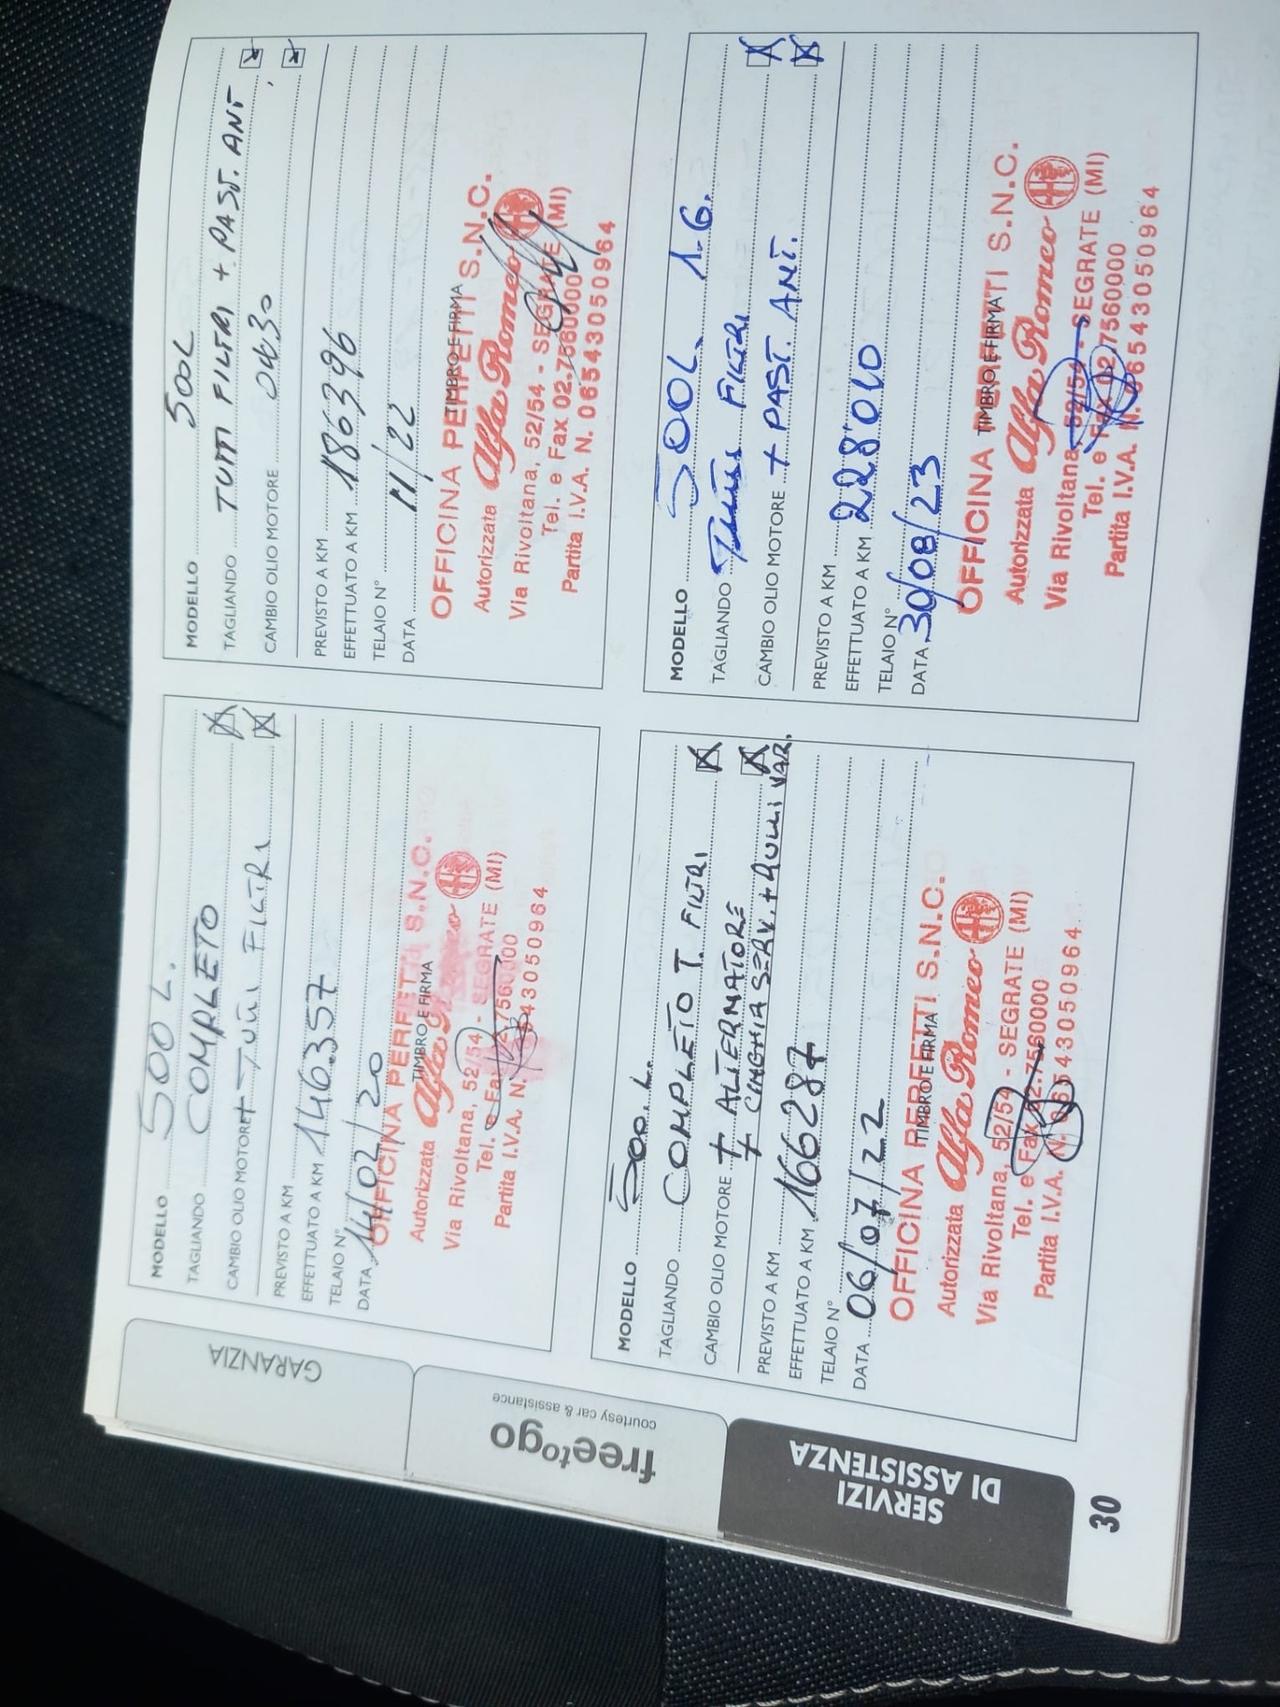 MODELLO 500 L.
TAGLIANDO COMPLETO
CAMBIO OLIO MOTORE + TUTTI FILTRI
PREVISTO A KM
EFFETTUATO A KM 146357
TELAIO N°
DATA 14/02/20
TIMBRO E FIRMA
OFFICINA PERFETTI S.N.C.
Autorizzata Alfa Romeo
Via Rivoltana, 52/54 - SEGRATE (MI)
Tel. e Fax 02.7560000
Partita I.V.A. N. 06543050964
MODELLO 500L
TAGLIANDO TUTTI FILTRI + PAST. ANT.
CAMBIO OLIO MOTORE 0W30
PREVISTO A KM
EFFETTUATO A KM 186396
TELAIO N°
DATA 11/22
TIMBRO E FIRMA
OFFICINA PERFETTI S.N.C.
Autorizzata Alfa Romeo
Via Rivoltana, 52/54 - SEGRATE (MI)
Tel. e Fax 02.7560000
Partita I.V.A. N. 06543050964
MODELLO 500.L.
TAGLIANDO COMPLETO T. FILTRI
CAMBIO OLIO MOTORE + ALTERNATORE
+ CINGHIA SERV. + RULLI VAR.
PREVISTO A KM
EFFETTUATO A KM 166287
TELAIO N°
DATA 06/07/22
TIMBRO E FIRMA
OFFICINA PERFETTI S.N.C.
Autorizzata Alfa Romeo
Via Rivoltana, 52/54 - SEGRATE (MI)
Tel. e Fax 02.7560000
Partita I.V.A. N. 06543050964
MODELLO 500L. 1.6.
TAGLIANDO Tutti FILTRI
CAMBIO OLIO MOTORE + PAST. ANT.
PREVISTO A KM
EFFETTUATO A KM 228010
TELAIO N°
DATA 30/08/23
TIMBRO E FIRMA
OFFICINA PERFETTI S.N.C.
Autorizzata Alfa Romeo
Via Rivoltana, 52/54 - SEGRATE (MI)
Tel. e Fax 02.7560000
Partita I.V.A. N. 06543050964
GARANZIA
freetogo
courtesy car & assistance
SERVIZI
DI ASSISTENZA
30